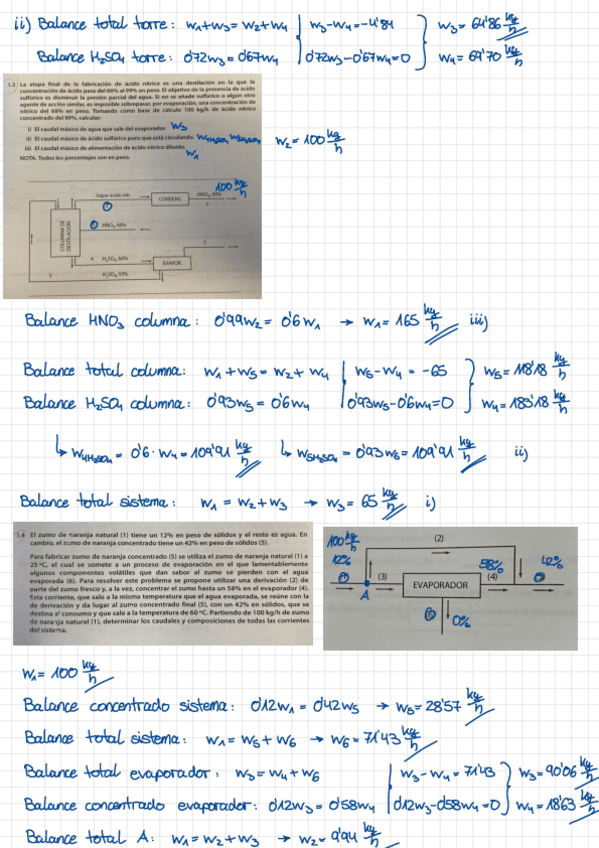 ii) Balance total torre: w1+w3 = w2+w4 | w3-w4 = -4'84 } w3 = 64'86 kg/h
Balance H2SO4 torre: 0'72w3 = 0'67w4 | 0'72w3-0'67w4=0 } w4 = 69'70 kg/h
1.3 La etapa final de la fabricación de ácido nítrico es una destilación en la que la
concentración de ácido pasa del 60% al 99% en peso. El objetivo de la presencia de ácido
sulfúrico es disminuir la presión parcial del agua. Si no se añade sulfúrico o algún otro
agente de acción similar, es imposible sobrepasar, por evaporación, una concentración de
nítrico del 68% en peso. Tomando como base de cálculo 100 kg/h de ácido nítrico
concentrado del 99%, calcular:
i) El caudal másico de agua que sale del evaporador. w3
ii) El caudal másico de ácido sulfúrico puro que está circulando. w4H2SO4, w5H2SO4
w2 = 100 kg/h
iii) El caudal másico de alimentación de ácido nítrico diluido. w1
NOTA. Todos los porcentajes son en peso.
100 kg/h
Vapor ácido nítr.
CONDENS.
HNO3 99%
2
COLUMNA DE DESTILACIÓN
1 HNO3 60%
3
4 H2SO4 60%
EVAPOR.
5 H2SO4 93%
Balance HNO3 columna: 0'99w2 = 0'6w1 → w1 = 165 kg/h iii)
Balance total columna: w1+w5 = w2+w4 | w5-w4 = -65 } w5 = 118'18 kg/h
Balance H2SO4 columna: 0'93w5 = 0'6w4 | 0'93w5-0'6w4=0 } w4 = 183'18 kg/h
↳ w4H2SO4 = 0'6·w4 = 109'91 kg/h ↳ w5H2SO4 = 0'93w5 = 109'91 kg/h ii)
Balance total sistema: w1 = w2+w3 → w3 = 65 kg/h i)
1.4 El zumo de naranja natural (1) tiene un 12% en peso de sólidos y el resto es agua. En
cambio, el zumo de naranja concentrado tiene un 42% en peso de sólidos (5).
Para fabricar zumo de naranja concentrado (5) se utiliza el zumo de naranja natural (1) a
25 ºC, el cual se somete a un proceso de evaporación en el que lamentablemente
algunos componentes volátiles que dan sabor al zumo se pierden con el agua
evaporada (6). Para resolver este problema se propone utilizar una derivación (2) de
parte del zumo fresco y, a la vez, concentrar el zumo hasta un 58% en el evaporador (4).
Esta corriente, que sale a la misma temperatura que el agua evaporada, se reúne con la
de derivación y da lugar al zumo concentrado final (5), con un 42% en sólidos, que se
destina al consumo y que sale a la temperatura de 60 ºC. Partiendo de 100 kg/h de zumo
de naranja natural (1), determinar los caudales y composiciones de todas las corrientes
del sistema.
100 kg/h
(2)
12%
58%
42%
(1)
(3)
EVAPORADOR
(4)
(5)
A
(6)
0%
w1 = 100 kg/h
Balance concentrado sistema: 0'12w1 = 0'42w5 → w5 = 28'57 kg/h
Balance total sistema: w1 = w5+w6 → w6 = 71'43 kg/h
Balance total evaporador: w3 = w4+w6 | w3-w4 = 71'43 } w3 = 90'06 kg/h
Balance concentrado evaporador: 0'12w3 = 0'58w4 | 0'12w3-0'58w4=0 } w4 = 18'63 kg/h
Balance total A: w1 = w2+w3 → w2 = 9'94 kg/h